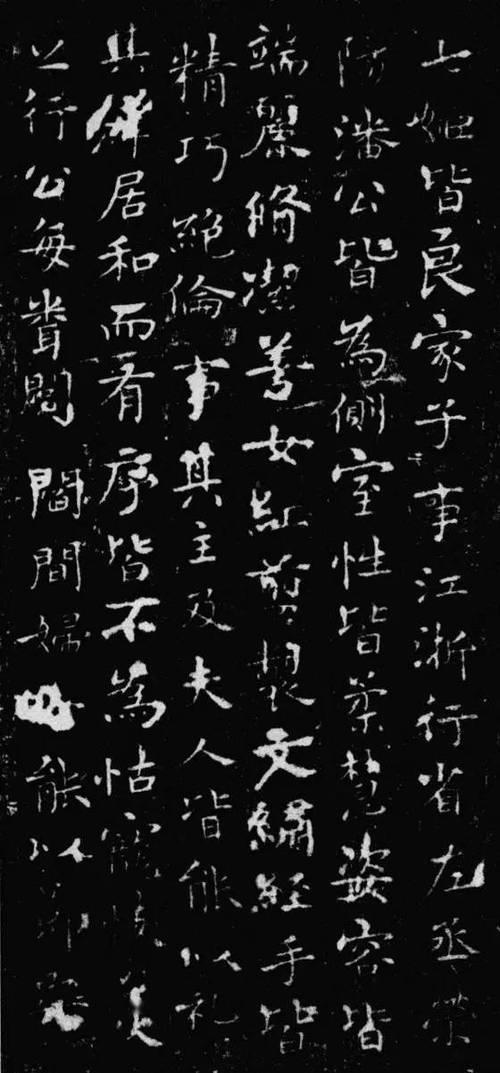 七姬皆良家子事江浙行省左丞榮
陽潘公皆為側室性皆柔慧姿容皆
端麗脩潔善女紅剪製文繡經手皆
精巧絕倫事其主及夫人皆能以礼
其羣居和而有序皆不為怙寵忮美
之行公每䎽閭閻間婦女能以節